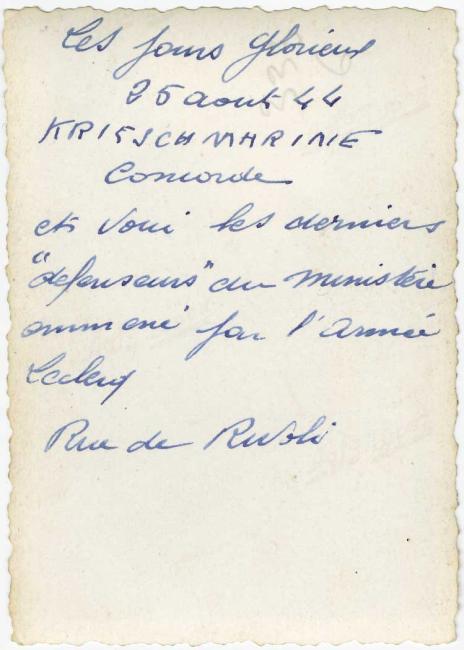 Les jours glorieux
25 aout 44
KRIESCHMARINE
Concorde
et voici les derniers
"defenseurs" du Ministère
emmené par l'Armée
Leclerc
Rue de Rivoli